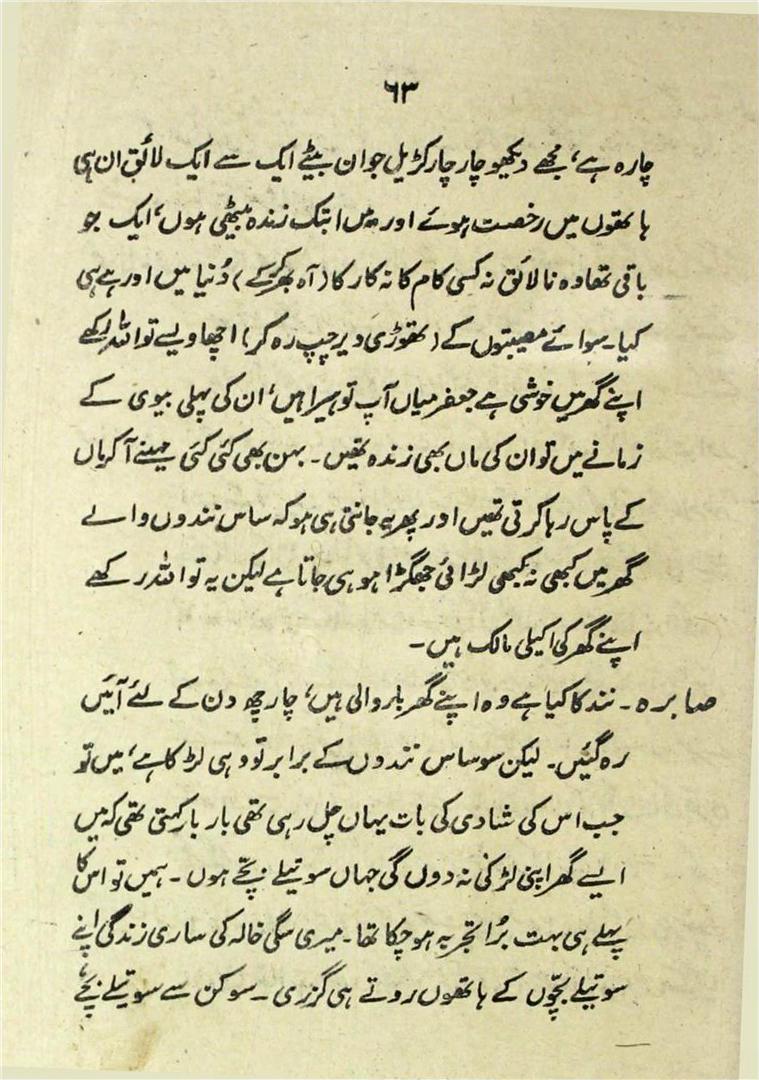 ۶۳
چارہ ہے، مجھے دیکھو چار چار کڑیل جوان بیٹے ایک سے ایک لائق ان ہی
ہاتھوں میں رخصت ہوئے اور میں ابتک زندہ بیٹھی ہوں، ایک جو
باقی تھا وہ نالائق نہ کسی کام کا نہ کار کا (آہ بھر کر کے) دُنیا میں اور ہے ہی
کیا۔ سوائے مصیبتوں کے (تھوڑی دیر چپ رہ کر) اچھا ویسے تو اللہ رکھے
اپنے گھر میں خوشی ہے جعفر میاں آپ تو ہیرا ہیں، ان کی پہلی بیوی کے
زمانے میں تو ان کی ماں بھی زندہ تھیں۔ بہن بھی کئی کئی مہینے آکر ہاں
کے پاس رہا کرتی تھیں اور پھر یہ جانتی ہی ہو کہ ساس نندوں والے
گھر میں کبھی نہ کبھی لڑائی جھگڑا ہو ہی جاتا ہے لیکن یہ تو اللہ رکھے
اپنے گھر کی اکیلی مالک ہیں۔
صابرہ۔ نند کا کیا ہے وہ اپنے گھر بار والی ہیں، چار چھ دن کے لئے آئیں
رہ گئیں۔ لیکن سو ساس نندوں کے برابر تو وہی لڑکا ہے، میں تو
جب اس کی شادی کی بات یہاں چل رہی تھی بار بار کہتی تھی کہ میں
ایسے گھر اپنی لڑکی نہ دوں گی جہاں سوتیلے بچّے ہوں۔ ہمیں تو اس کا
پہلے ہی بہت بُرا تجربہ ہو چکا تھا۔ میری سگی خالہ کی ساری زندگی اپنے
سوتیلے بچّوں کے ہاتھوں روتے ہی گزری۔ سوکن سے سوتیلے بچّے،